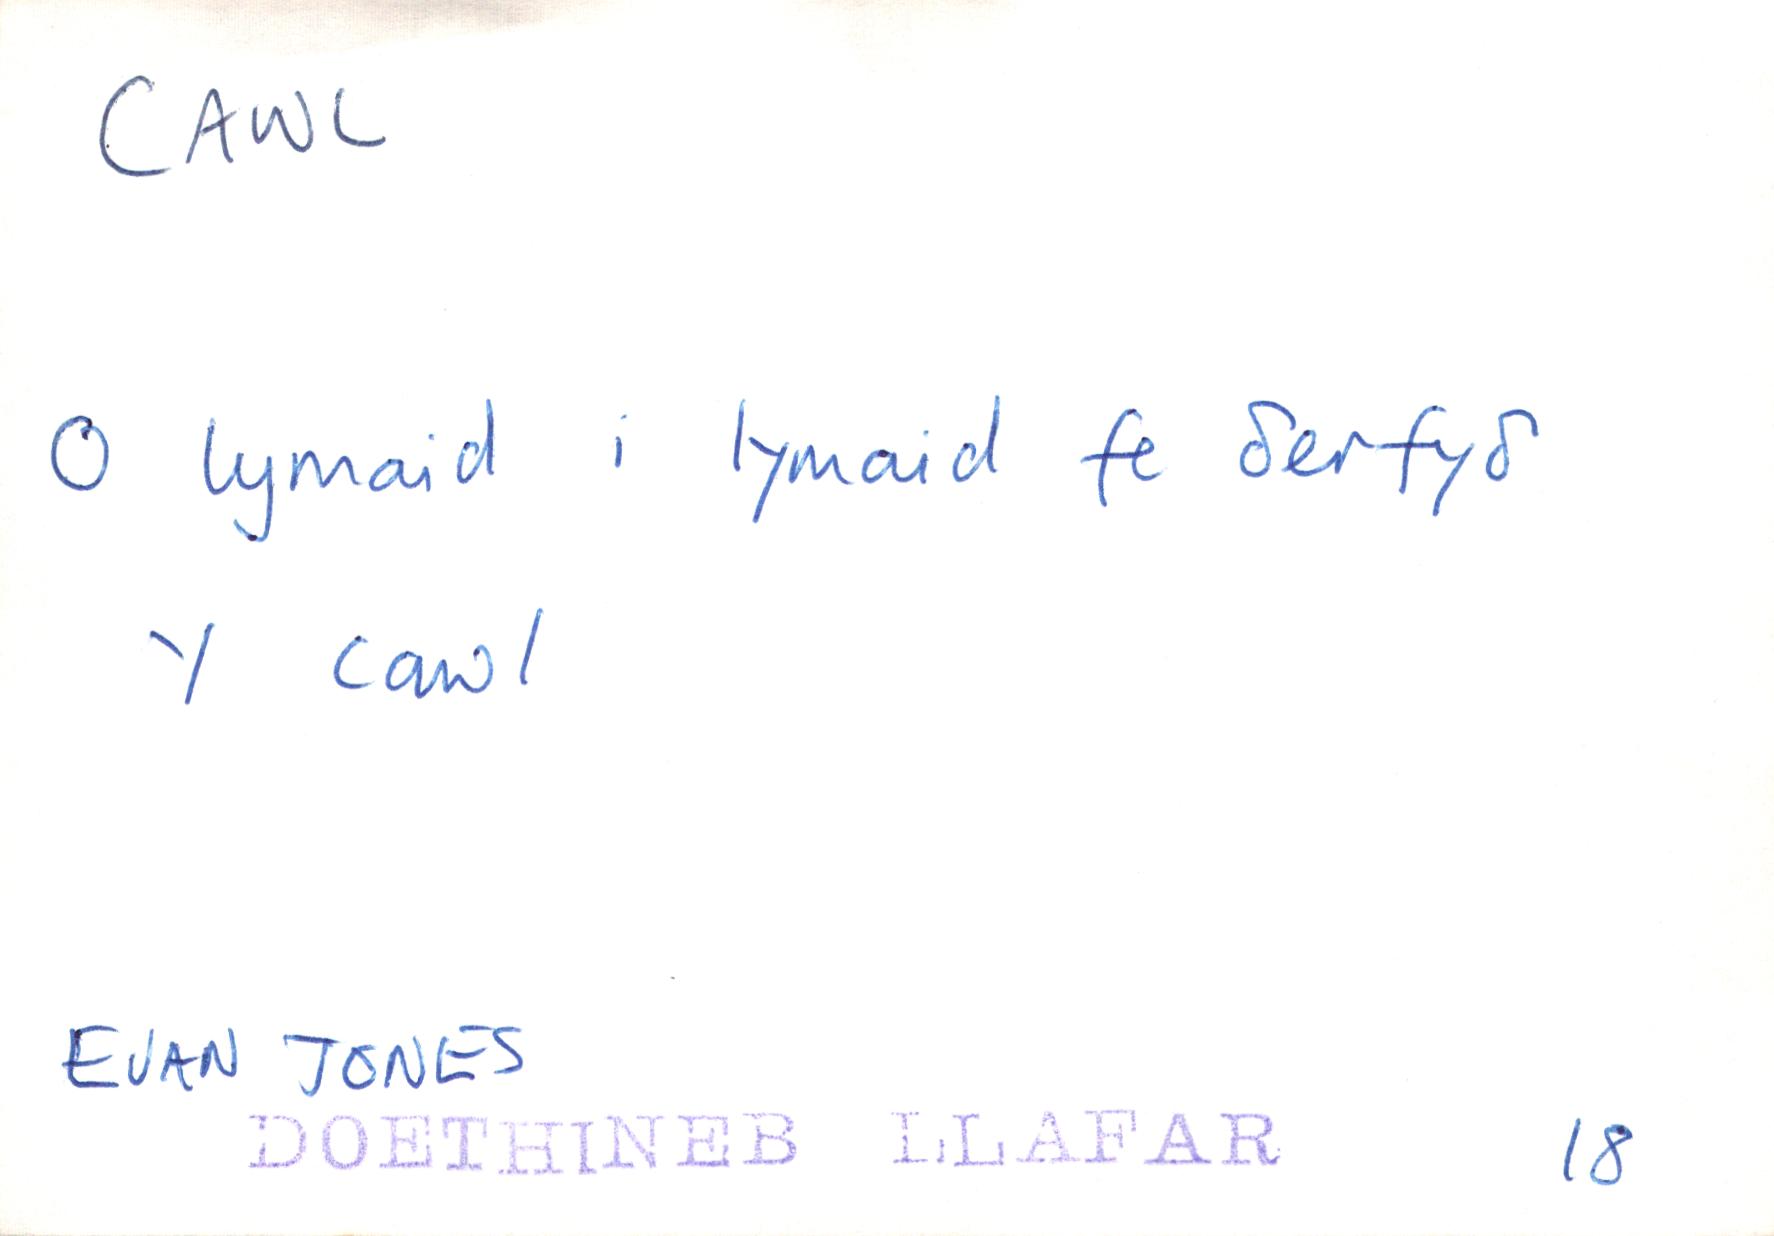 CAWL
O lymaid i lymaid fe δerfyδ
Y cawl
EVAN JONES
DOETHINEB LLAFAR 18